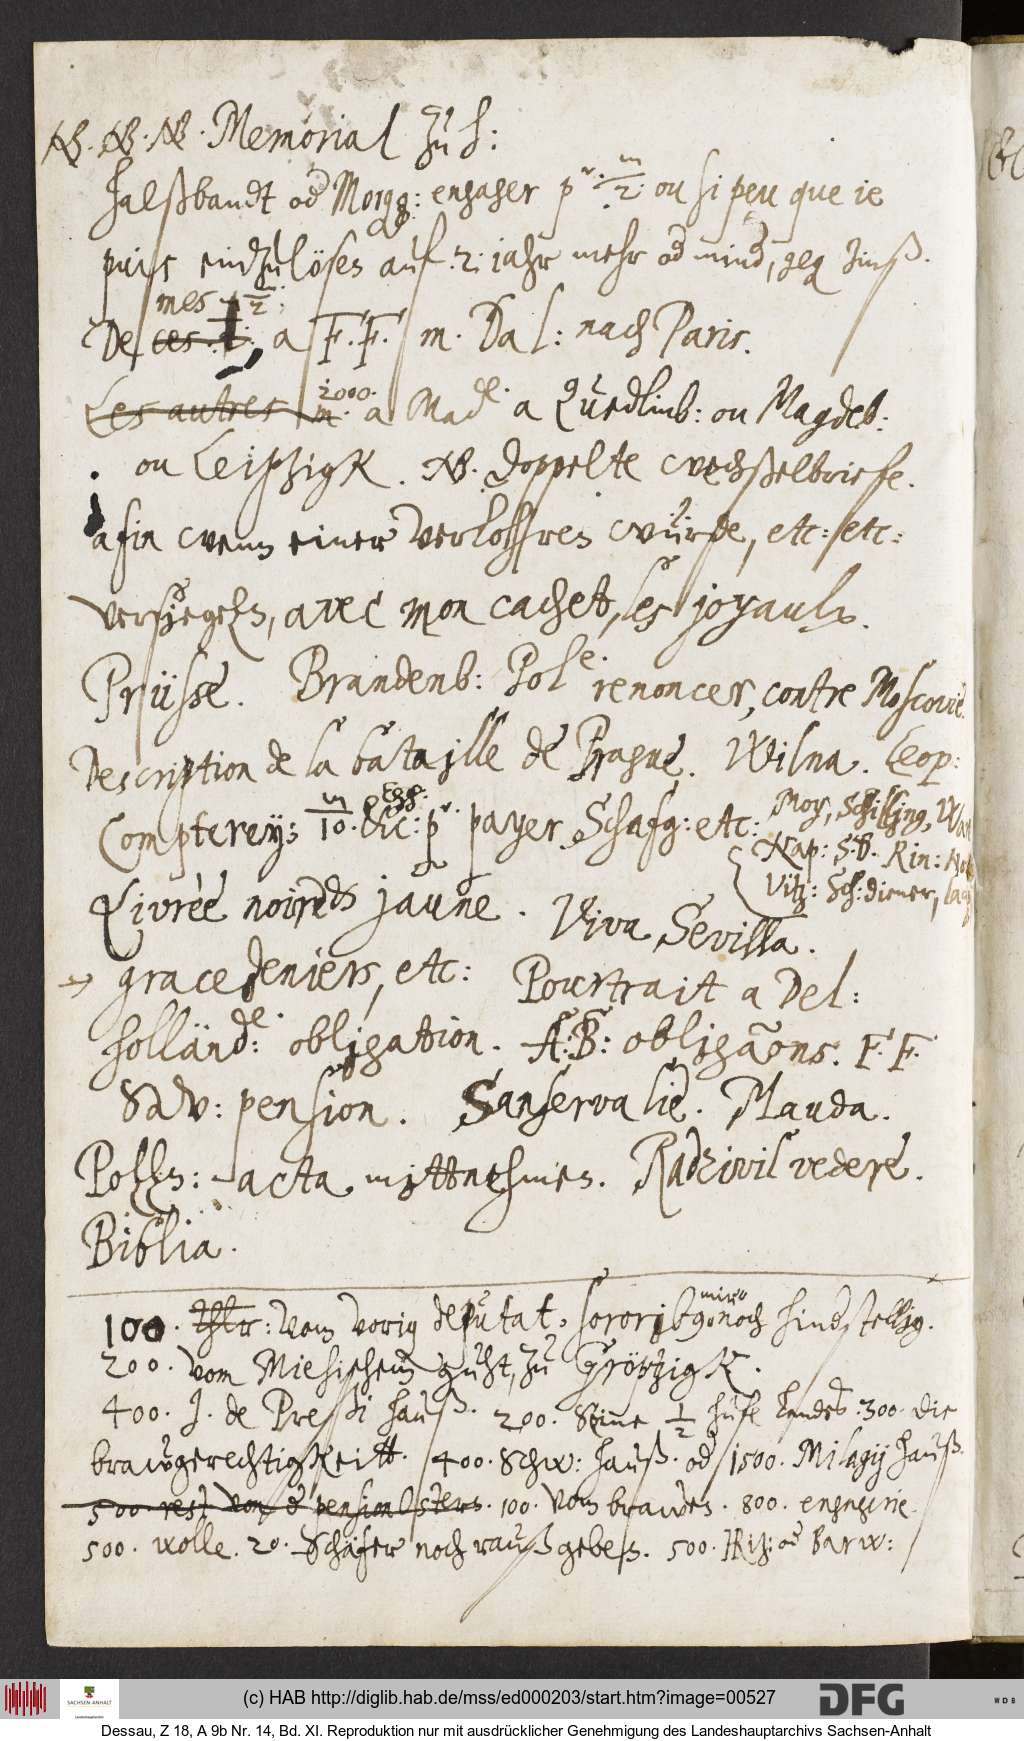 NB. NB. NB. Memorial zu h:
Halßbandt od Morgg: engager pr. m/2: ou si peu que je
puis einzulösen auf .2. jahr mehr od mind, geg Zinß.
mes m/2:
De ces a F. F. m. Dal: nach Paris.
2000.
Les autres m. a Made. a Quedlinb: ou Magdeb:
ou Leiptzigk. NB. doppelte wechßelbriefe.
afin wenn einer verlohren würde, etc: etc:
versiegeln, avec mon cachet, les joyaulx.
Prüsse. Brandenb: Pole. renoncer, contre Moscovie.
Description de la bataille de Prague. Wilna. Leop:
Compterey: m/10. pr. payer Schafg: etc: Moy, Schilling,
Nap: S. B. Rin:
Vitz: Sch: diener,
Livrèe noire jaune. Viva Sevilla.
grace deniers, etc: Pourtrait a Del:
hollände: obligation. A: B: obligãons. F. F.
Sav: pension. Sanservalie. Mauda.
Polln: acta mittnehmen. Radzivil vedere.
Biblia.
mir
100. Thlr: vom vorig deputat, sororib9. noch hindstellig.
200. vom zu Gröptzigk.
400. J. de Preßi hauß. 200. Seine 1/2 hufe landes. 300. die
brawgerechtigkeitt. 400. Schw: hauß. od 1500. Milagij hauß.
500. rest von d pension Ostern. 100. Vom brawen. 800. engagirie.
500. wolle. 20. Schäfer noch raußgeben. 500. Ritz: od Barw:
(c) HAB http://diglib.hab.de/mss/ed000203/start.htm?image=00527
SACHSEN-ANHALT
DFG
WDB
Dessau, Z 18, A 9b Nr. 14, Bd. XI. Reproduktion nur mit ausdrücklicher Genehmigung des Landeshauptarchivs Sachsen-Anhalt